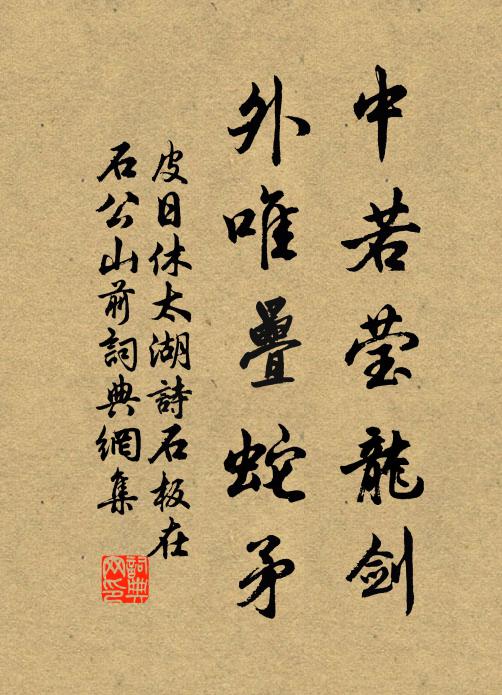 中若莹龍剑
外唯疊蛇矛
皮日休太湖詩石板在
石公山前詞典網集
詞典网印